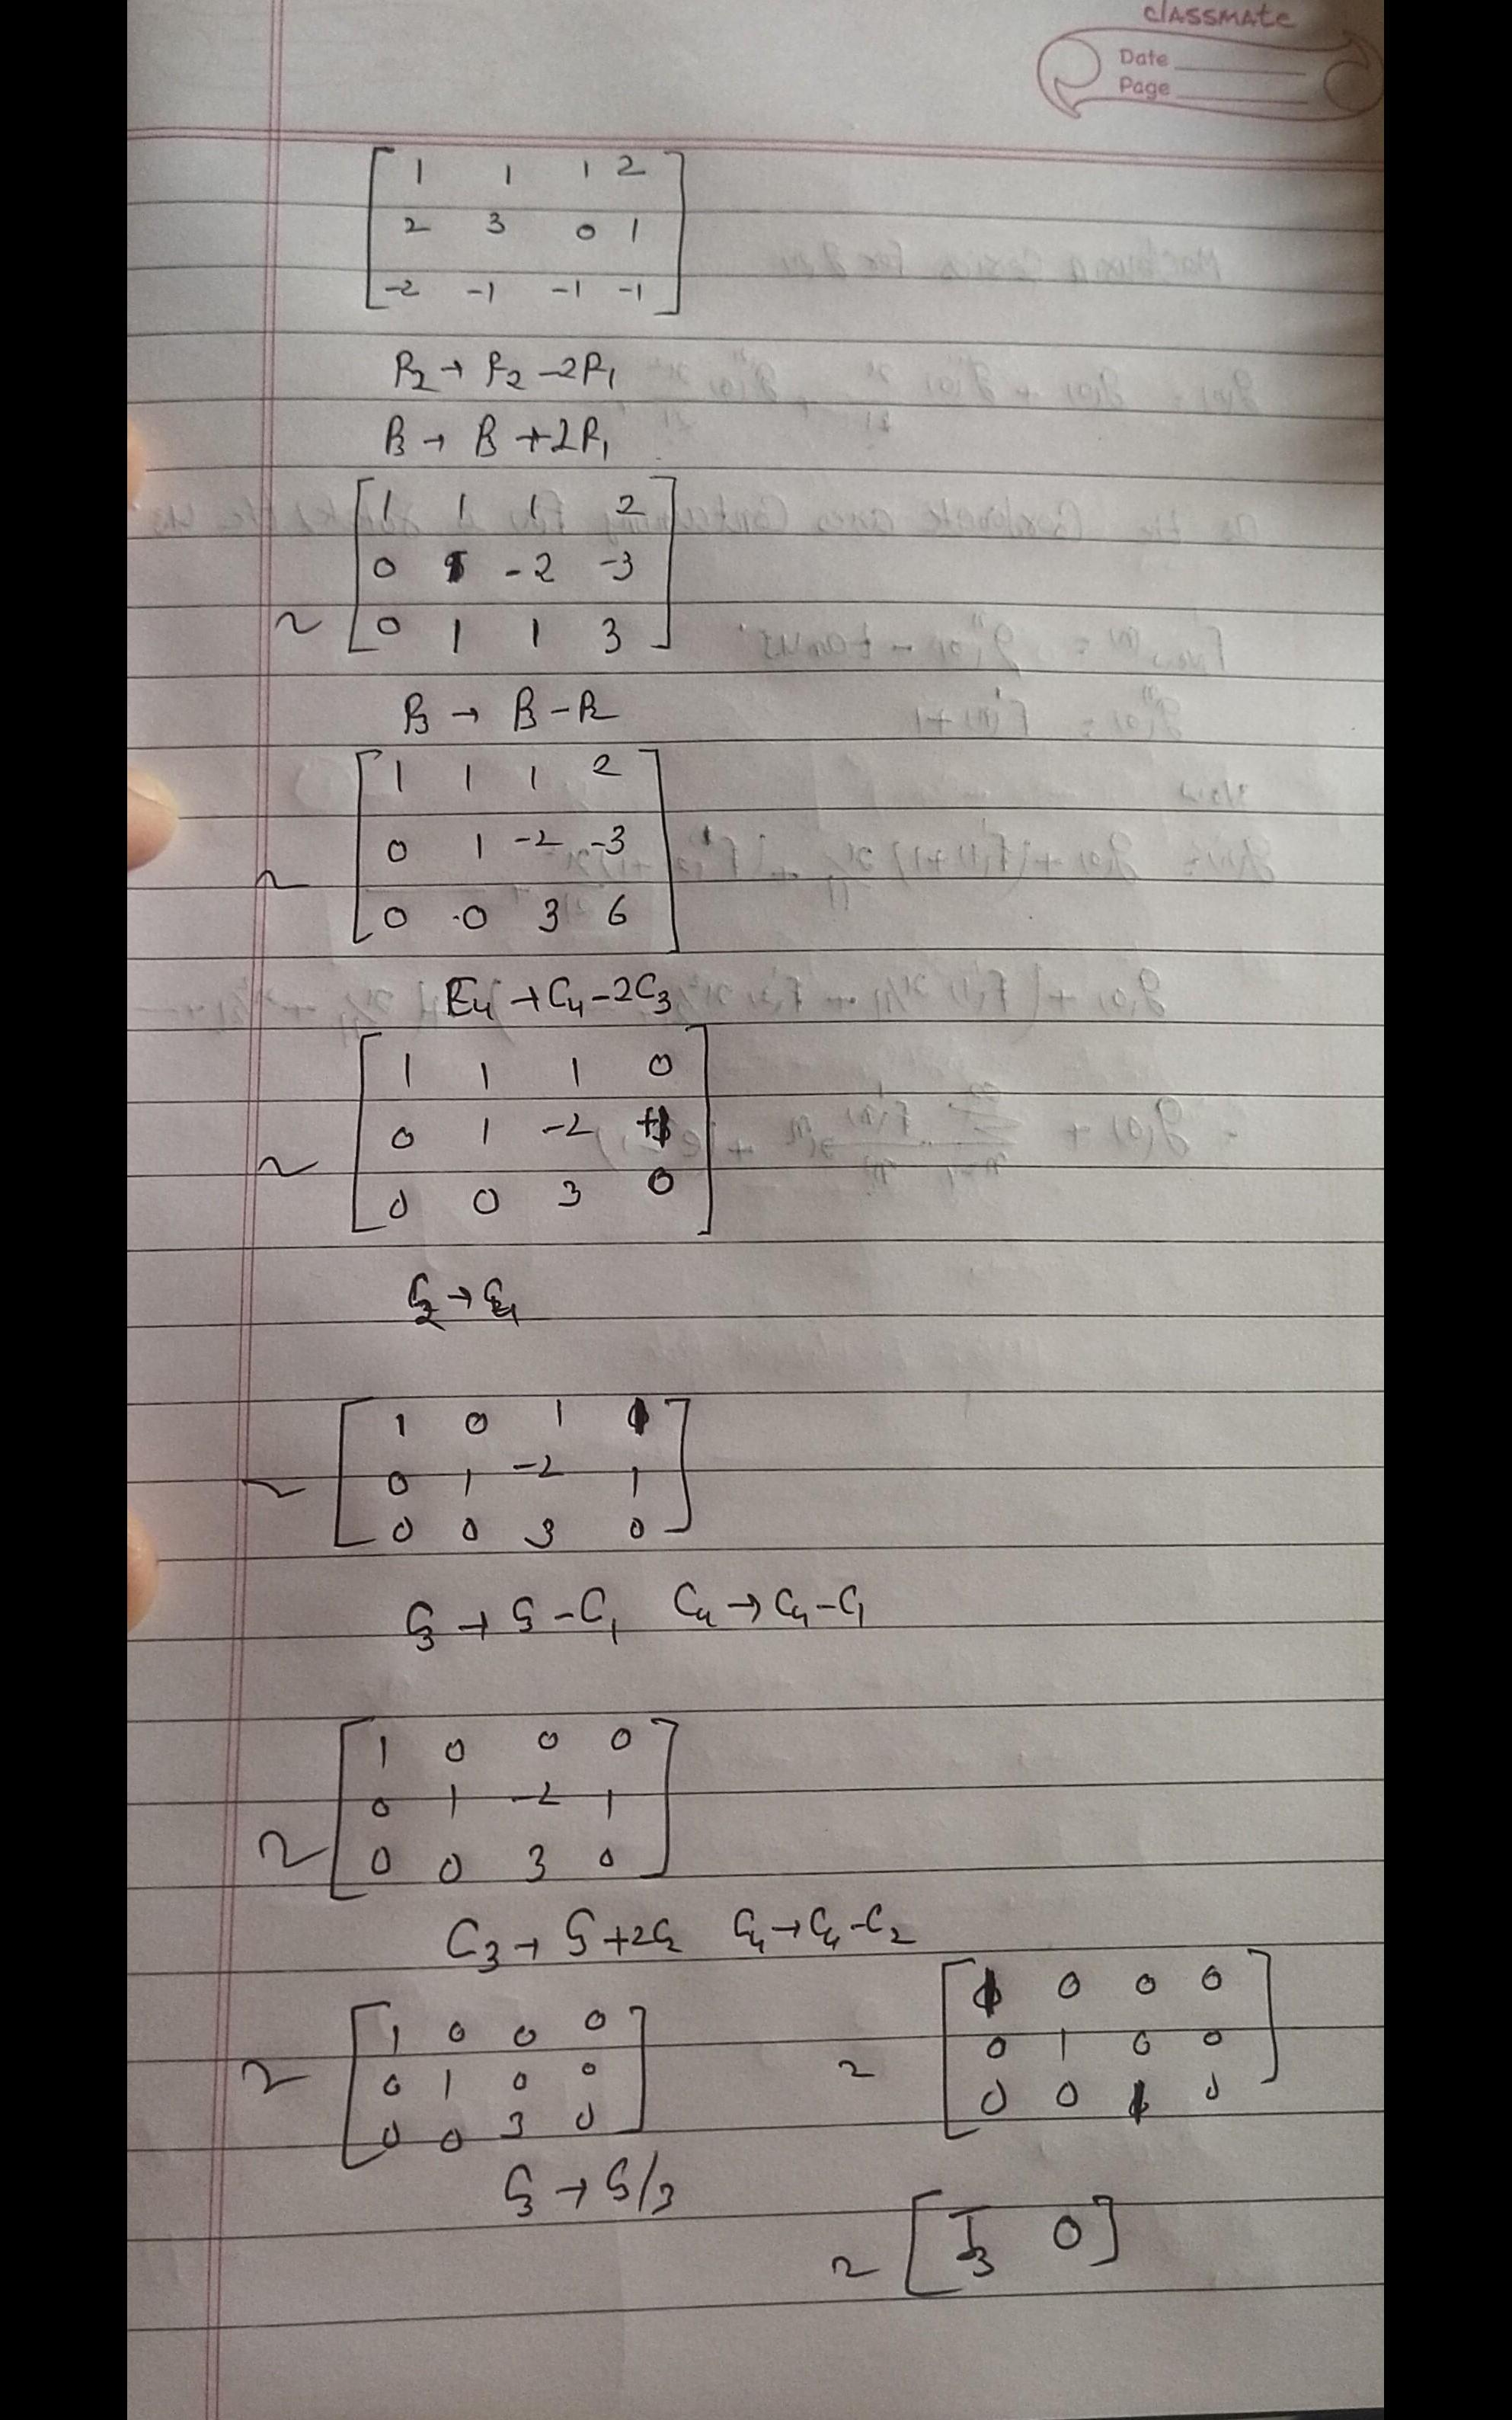 classmate
Date
Page
1 1 1 2
2 3 0 1
-2 -1 -1 -1
R2 → R2 -2R1
R3 → R3 +2R1
1 1 1 2
0 1 -2 -3
~ 0 1 1 3
R3 → R3 - R2
1 1 1 2
0 1 -2 -3
~ 0 0 3 6
C4 → C4 - 2C3
1 1 1 0
0 1 -2 +1
~ 0 0 3 0
C2 →
1 0 1 0
~ 0 1 -2 1
0 0 3 0
C3 → C3 - C1 C4 → C4 - C1
1 0 0 0
0 1 -2 1
~ 0 0 3 0
C3 → C3 +2C2 C4 → C4 - C2
~ [1 0 0 0
0 1 0 0
0 0 3 0]
~ [1 0 0 0
0 1 0 0
0 0 1 0]
C3 → C3/3
~ [I3 0]